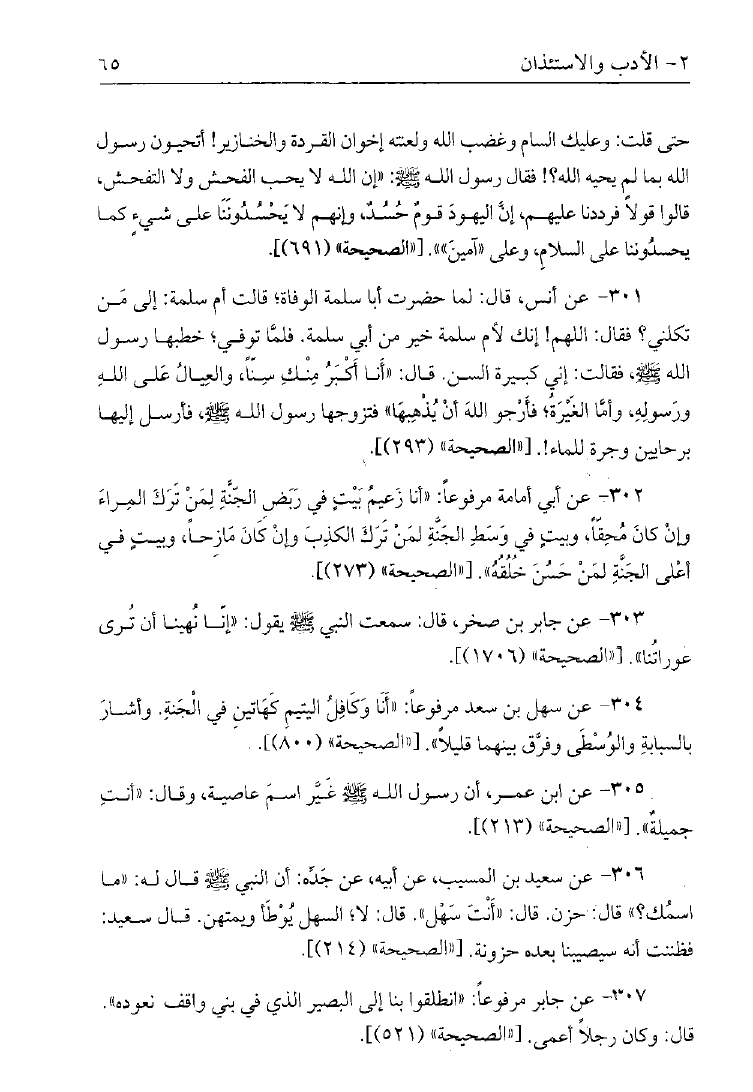 ٢- الأدب والاستئذان ٦٥
حتى قلت: وعليك السام وغضب الله ولعنته إخوان القردة والخنازير! أتحيون رسول
الله بما لم يحيه الله؟! فقال رسول الله ﷺ: «إن الله لا يحب الفحش ولا التفحش،
قالوا قولاً فرددنا عليهم، إنَّ اليهودَ قومٌ حُسُدٌ، وإنهم لا يَحْسُدُونَنَا على شيءٍ كما
يحسدُوننا على السلامِ، وعلى «آمينَ»». [«الصحيحة» (٦٩١)].
٣٠١- عن أنس، قال: لما حضرت أبا سلمة الوفاة؛ قالت أم سلمة: إلى مَن
تكلني؟ فقال: اللهم! إنك لأم سلمة خير من أبي سلمة. فلمَّا توفي؛ خطبها رسول
الله ﷺ، فقالت: إني كبيرة السن. قال: «أَنا أَكْبَرُ مِنْكِ سِنّاً، والعِيالُ عَلى اللهِ
ورَسولِهِ، وأمَّا الغَيْرَةُ؛ فأَرْجو اللهَ أنْ يُذْهِبَهَا» فتزوجها رسول الله ﷺ، فأرسل إليها
برحايين وجرة للماء!. [«الصحيحة» (٢٩٣)].
٣٠٢- عن أبي أمامة مرفوعاً: «أنا زَعيمُ بَيْتٍ في رَبَضِ الجَنَّةِ لِمَنْ تَرَكَ المِراءَ
وإنْ كانَ مُحِقّاً، وبيتٍ في وَسَطِ الجَنَّةِ لمَنْ تَرَكَ الكذِبَ وإنْ كَانَ مَازِحاً، وبيتٍ في
أعْلى الجَنَّةِ لمَنْ حَسُنَ خُلُقُهُ». [«الصحيحة» (٢٧٣)].
٣٠٣- عن جابر بن صخر، قال: سمعت النبي ﷺ يقول: «إنّا نُهينا أن تُرى
عوراتُنا». [«الصحيحة» (١٧٠٦)].
٣٠٤- عن سهل بن سعد مرفوعاً: «أَنَا وَكَافِلُ اليتيمِ كَهَاتينِ في الْجَنةِ. وأشارَ
بالسبابةِ والوُسْطَى وفرَّق بينهما قليلاً». [«الصحيحة» (٨٠٠)].
٣٠٥- عن ابن عمر، أن رسول الله ﷺ غَيَّر اسمَ عاصية، وقال: «أنتِ
جميلةٌ». [«الصحيحة» (٢١٣)].
٣٠٦- عن سعيد بن المسيب، عن أبيه، عن جَدِّه: أن النبي ﷺ قال له: «ما
اسمُك؟» قال: حزن. قال: «أَنْتَ سَهْل». قال: لا؛ السهل يُوْطَأ ويمتهن. قال سعيد:
فظننت أنه سيصيبنا بعده حزونة. [«الصحيحة» (٢١٤)].
٣٠٧- عن جابر مرفوعاً: «انطلقوا بنا إلى البصير الذي في بني واقف نعوده».
قال: وكان رجلاً أعمى. [«الصحيحة» (٥٢١)].